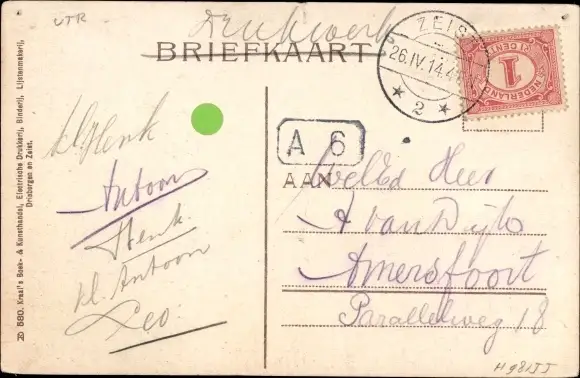 UTR
Drukwerk
BRIEFKAART
ZEIST
26.IV.14.4
2
1 CENT
NEDERLAND
1
A 6
AAN
WelEd Heer
A van Dijk
Amersfoort
Parallelweg 18
kl. Henk
Antoon
Henk
kl. Antoon
Leo.
580. Kraal's Boek- & Kunsthandel, Electrische Drukkerij, Binderij, Lijstenmakerij,
Driebergen en Zeist.